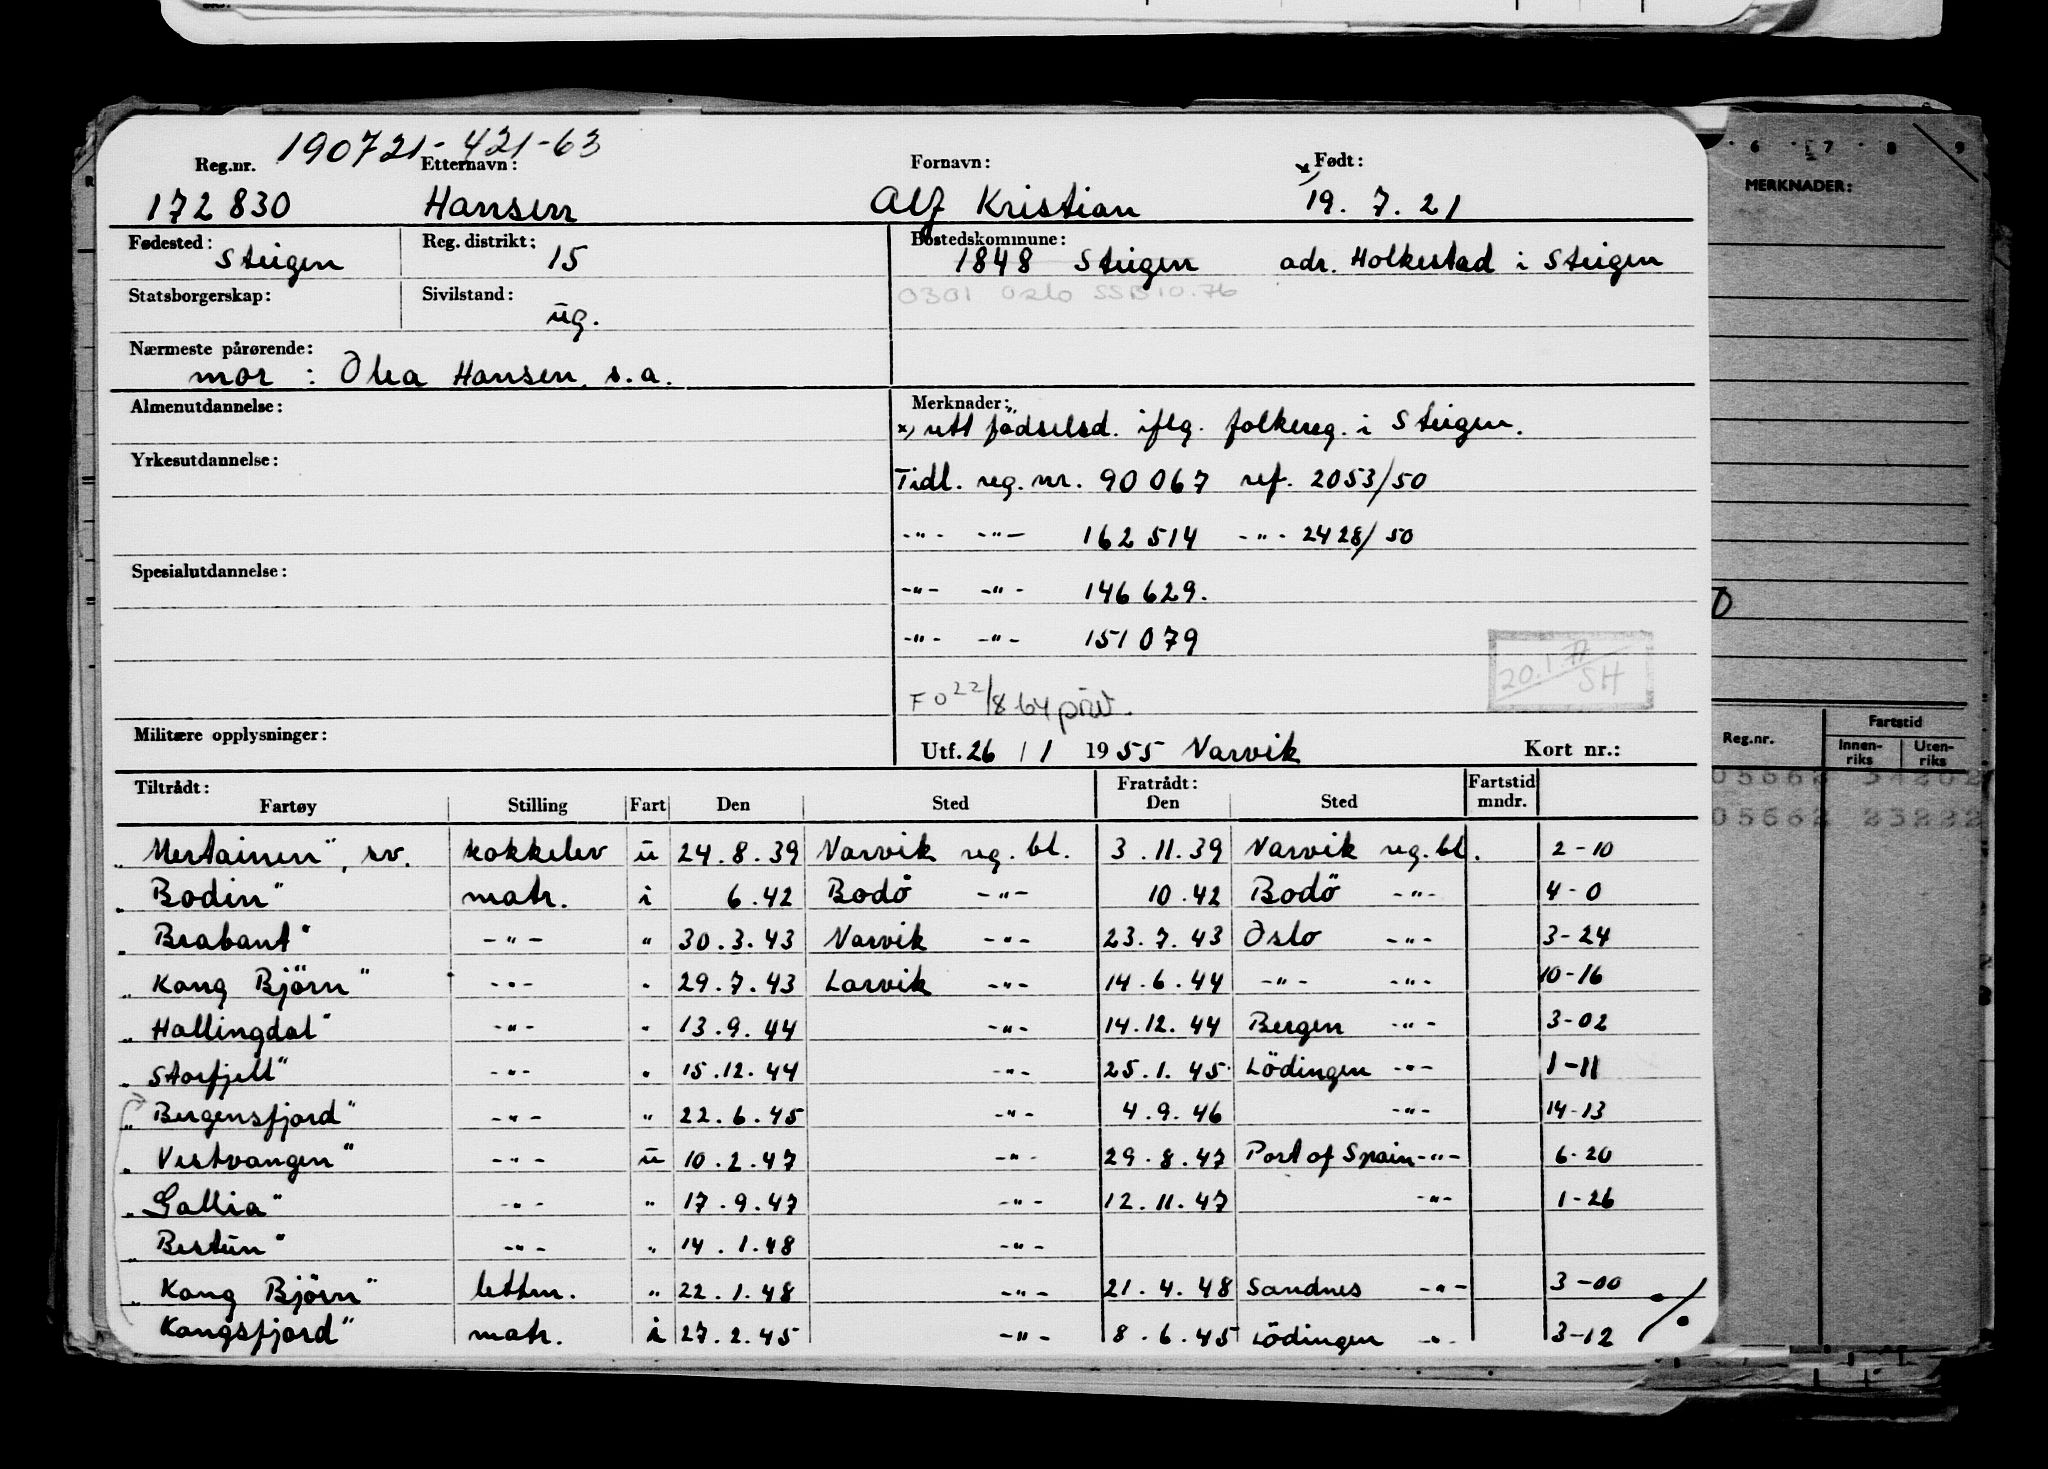 190721-421-63
Reg.nr. Etternavn: Fornavn: Født:
172 830 Hansen Alf Kristian x) 19. 7. 21
Fødested: Steigen Reg. distrikt: 15 Bostedskommune: 1848 Steigen adr. Holkestad i Steigen
Statsborgerskap: Sivilstand: ug. 0301 Oslo SSB 10.76
Nærmeste pårørende:
mor : Olea Hansen, s.a.
Almenutdannelse: Merknader:
x) rett fødselsd. iflg. folkereg. i Steigen.
Yrkesutdannelse:
Tidl. reg. nr. 90 067 ref. 2053/50
-"- -"- 162 514 -"- 2428/50
Spesialutdannelse:
-"- -"- 146 629.
-"- -"- 151 079
20.1.77 SH
FO 22/8 64 priv.
Militære opplysninger:
Utf. 26 / 1 1955 Narvik Kort nr.:
Tiltrådt: Fratrådt: Fartstid
Fartøy Stilling Fart Den Sted Den Sted mndr.
"Mertainen", sv. kokkelev u 24. 8. 39 Narvik reg. bl. 3. 11. 39 Narvik reg. bl. 2-10
"Bodin" matr. i 6. 42 Bodö -"- 10. 42 Bodö -"- 4-0
"Brabant" -"- " 30. 3. 43 Narvik -"- 23. 7. 43 Oslo -"- 3-24
"Kong Björn" -"- " 29. 7. 43 Larvik -"- 14. 6. 44 -"- -"- 10-16
"Hallingdal" -"- " 13. 9. 44 -"- 14. 12. 44 Bergen -"- 3-02
"Storfjell" -"- " 15. 12. 44 -"- 25. 1. 45 Lödingen -"- 1-11
"Bergensfjord" -"- " 22. 6. 45 -"- 4. 9. 46 -"- 14-13
"Vestvangen" -"- u 10. 2. 47 -"- 29. 8. 47 Port of Spain -"- 6-20
"Gallia" -"- " 17. 9. 47 -"- 12. 11. 47 -"- 1-26
"Bestun" -"- " 14. 1. 48 -"-
"Kong Björn" lettm. " 22. 1. 48 -"- 21. 4. 48 Sandnes -"- 3-00
Kongsfjord" matr. i 27. 2. 45 -"- 8. 6. 45 Lödingen -"- 3-12 ./.
6 7 8 9
MERKNADER:
Reg.nr. Fartstid
Innen-riks Uten-riks
05662
05662 23232